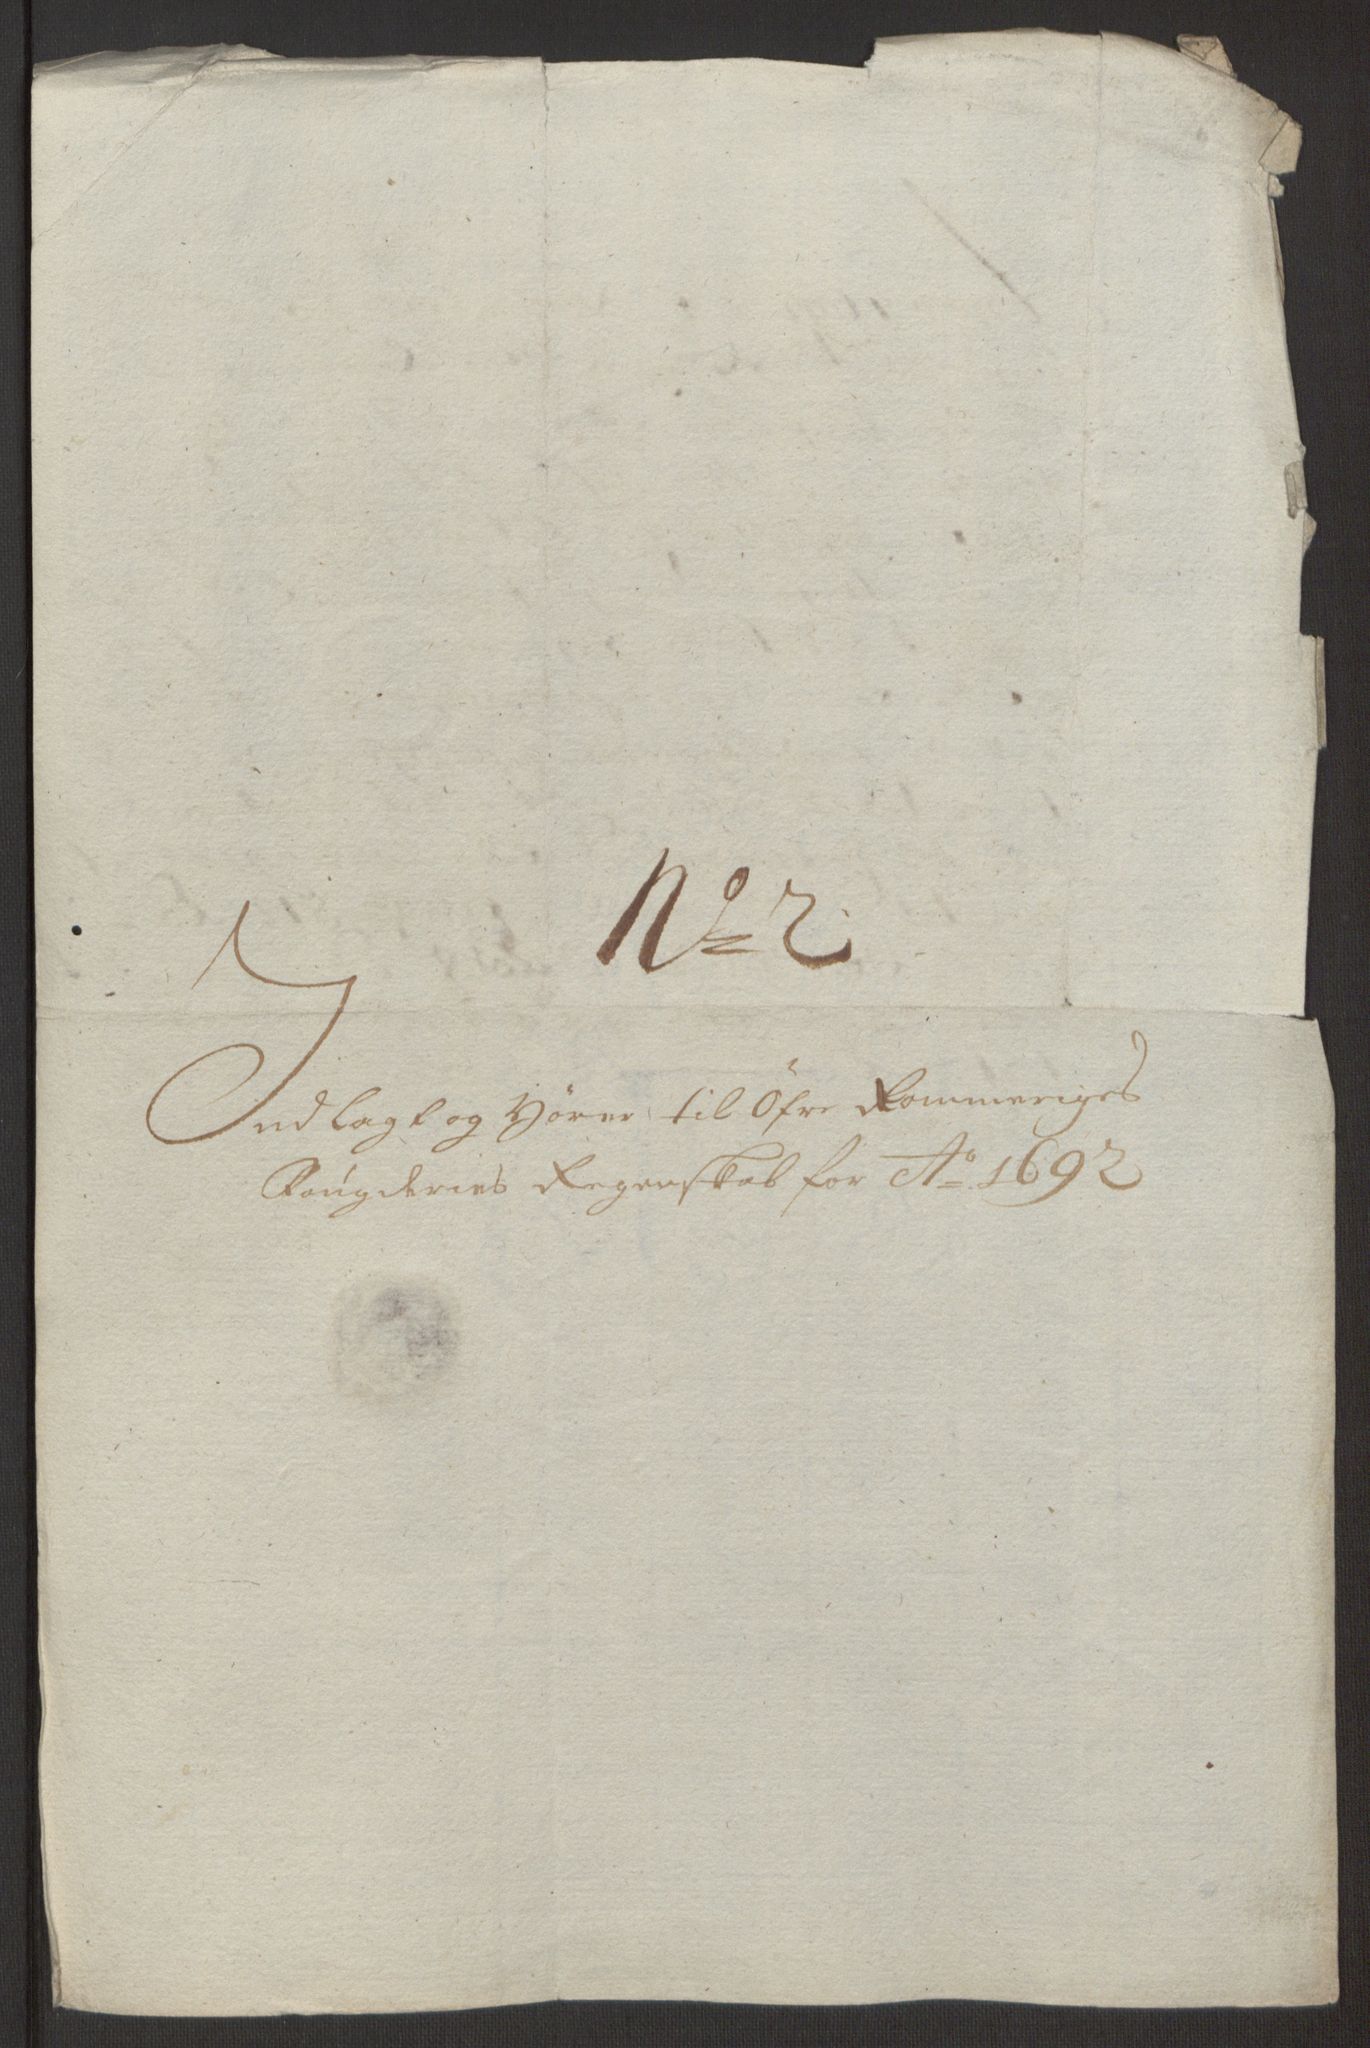 No 2
Indlagt og Hörer til Öfre Rommeriges
Fougderies Regenskab for Ao 1692